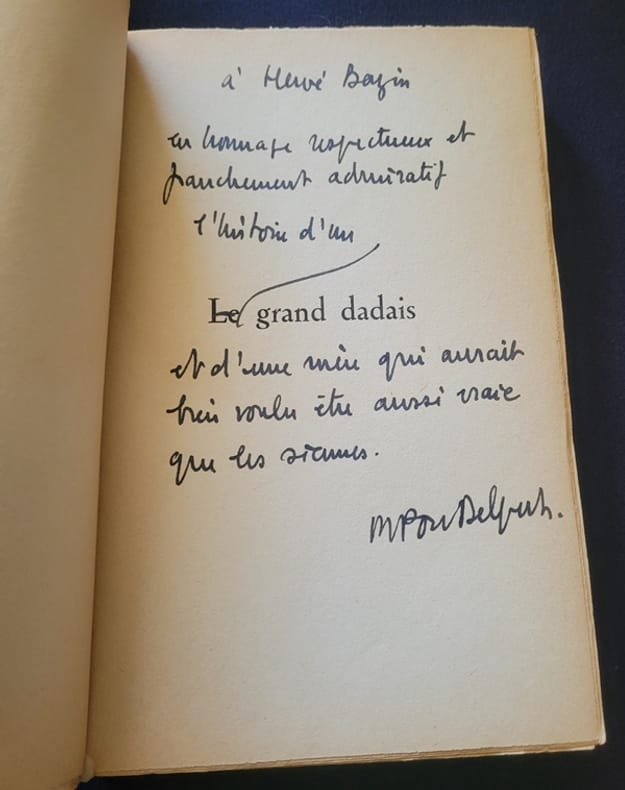 à Hervé Bazin
en hommage respectueux et
franchement admiratif
l'histoire d'un
Le grand dadais
et d'une mère qui aurait
bien voulu être aussi vraie
que les siennes.